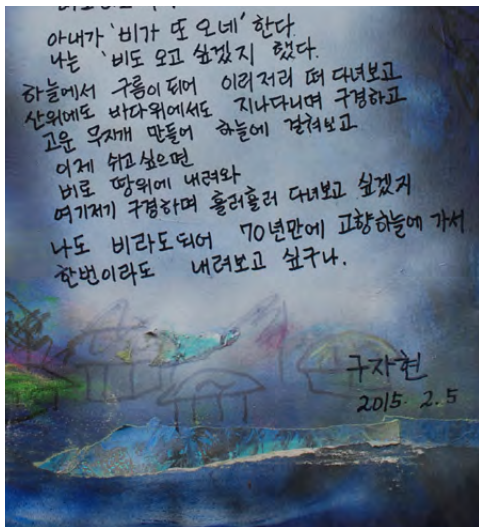 아내가 '비가 또 오네' 한다.
나는 '비도 오고 싶겠지' 했다.
하늘에서 구름이 되어 이리저리 떠 다녀보고
산위에도 바다위에서도 지나다니며 구경하고
고운 무지개 만들어 하늘에 걸쳐보고
이제 쉬고 싶으면
비로 땅위에 내려와
여기저기 구경하며 흘러흘러 다녀보고 싶겠지
나도 비라도되어 70년만에 고향하늘에 가서
한번이라도 내려보고 싶구나.
구자현
2015. 2. 5